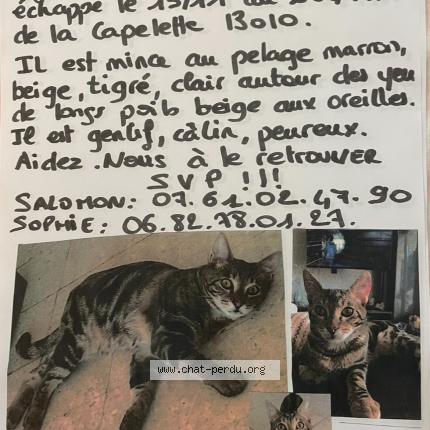 échappé le 15/11 au
de la Capelette 13010.
Il est mince au pelage marron,
beige, tigré, clair autour des yeu
de longs poils beige aux oreilles.
Il est gentil, câlin, peureux.
Aidez.Nous à le retrouver
S V P !!!
SALOMON: 07.61.02.47.90
SOPHIE: 06.82.78.01.27.
www.chat-perdu.org